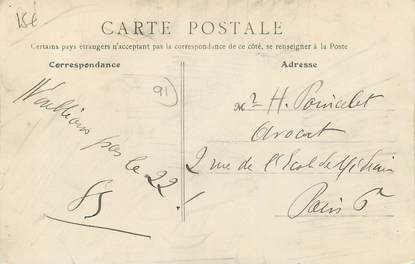 15€
CARTE POSTALE
Certains pays étrangers n'acceptant pas la correspondance de ce côté, se renseigner à la Poste
Correspondance
Adresse
91
N'oublions pas le 22 !
Mr H. Poincelet
avocat
2 rue de l'Ecole de Médecin
Paris 6e